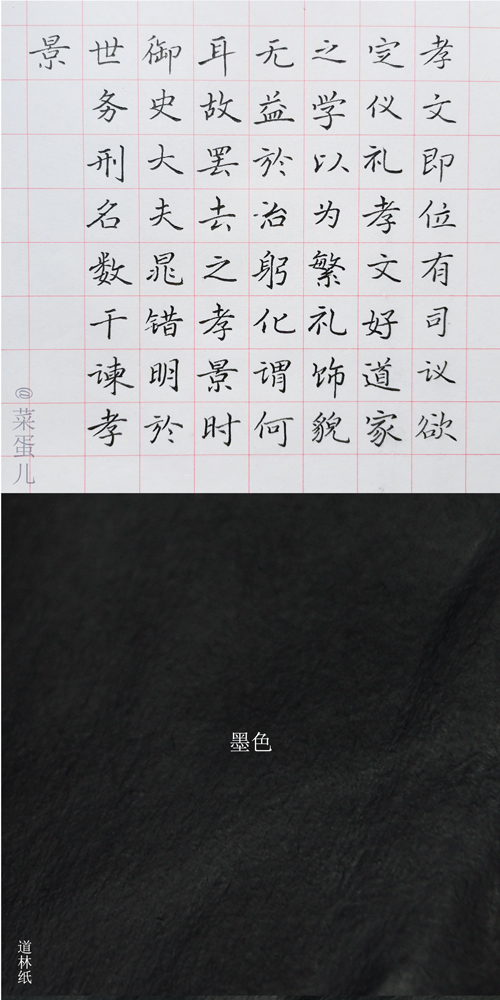 孝文即位有司议欲
定仪礼孝文好道家
之学以为繁礼饰貌
无益於治躬化谓何
耳故罢去之孝景时
御史大夫晁错明於
世务刑名数干谏孝
景
@菜蛋儿
墨色
道林纸